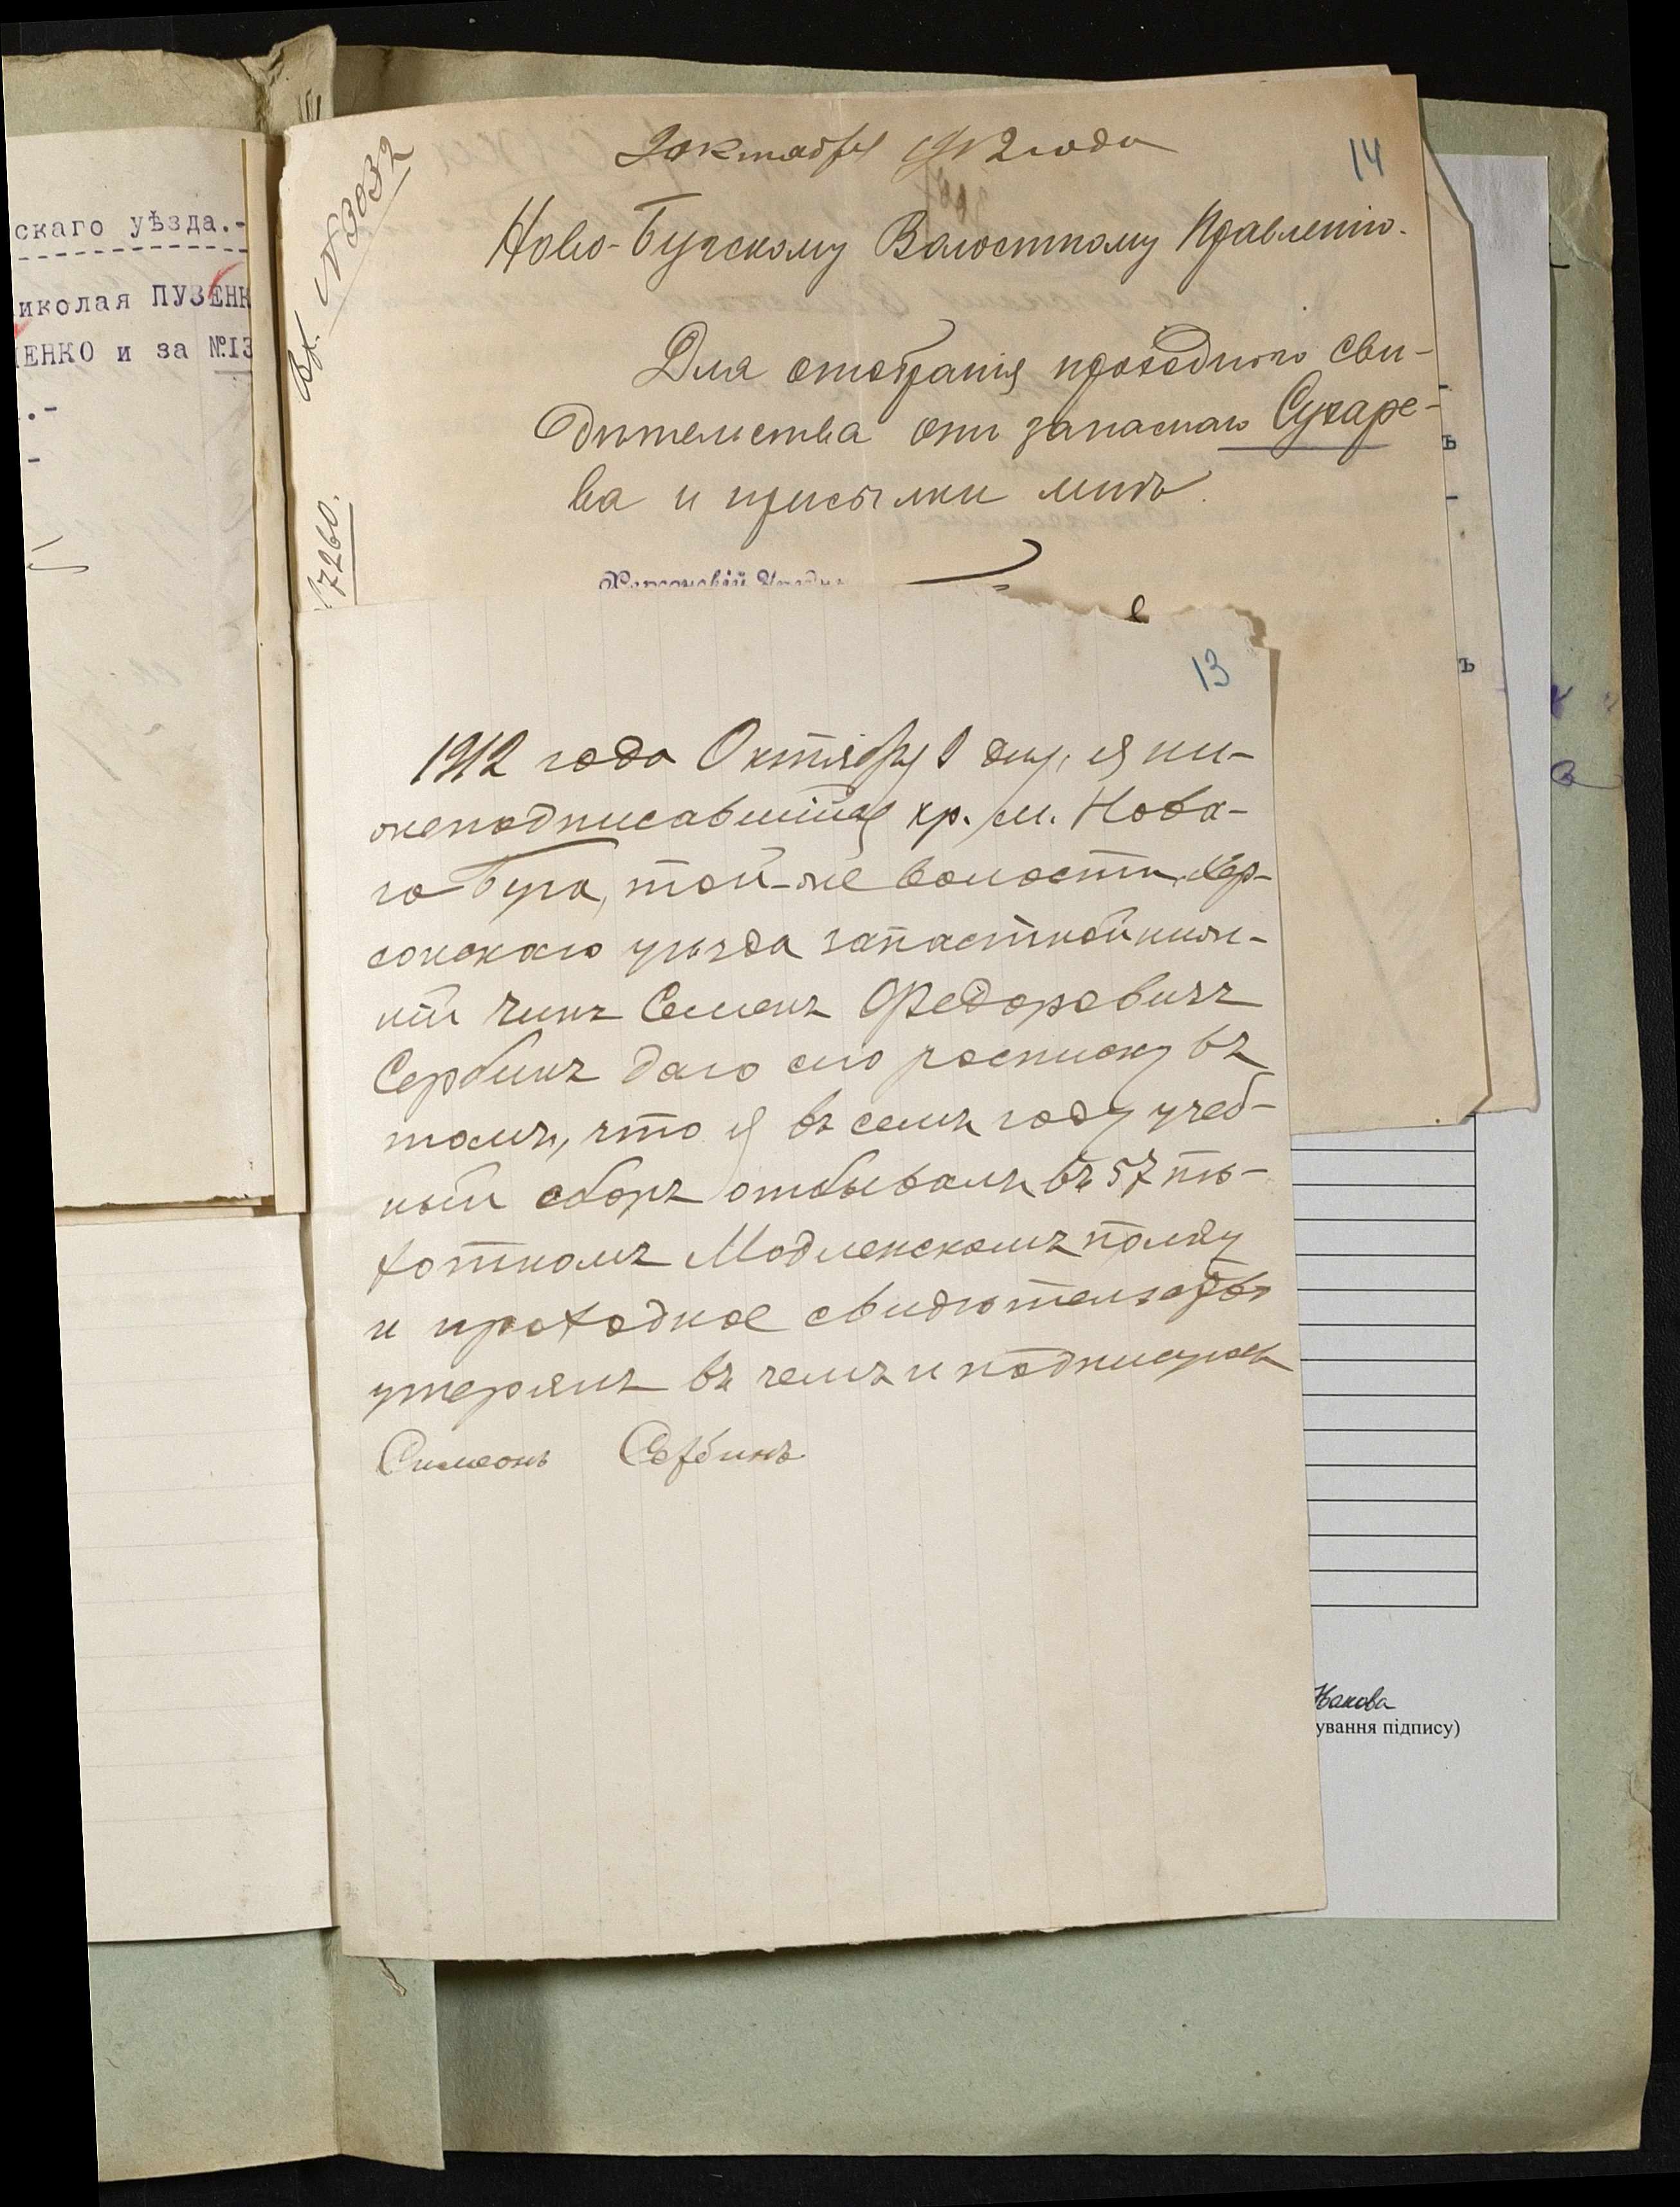 скаго уѣзда.-
иколая ПУЗЕНК
ЕНКО и за №13
.-
-
Вх. №3032
17260.
2 октября 1912 года
14
Ново-Бугскому Волостному Правленію.
Для отобранія проходного сви-
дѣтельства отъ запаснаго Сухаре-
ва и присылки мнѣ.
Херсонскій Уѣздн
13
1912 года Октября 9 дня, я ни-
жеподписавшійся кр. м. Нова-
го Буга, той-же волости, Хер-
сонскаго уѣзда запастной ниж-
ній чинъ Семенъ Федоровичъ
Сербинъ даю сию росписку въ
томъ, что я въ семъ году учеб-
ный сборъ отбывалъ въ 57 пѣ-
хотномъ Модленскомъ полку
и проходное свидѣтельство
утерялъ въ чемъ и подписуюсь
Симеонъ Сербинъ
ъ
-
ъ
ування підпису)